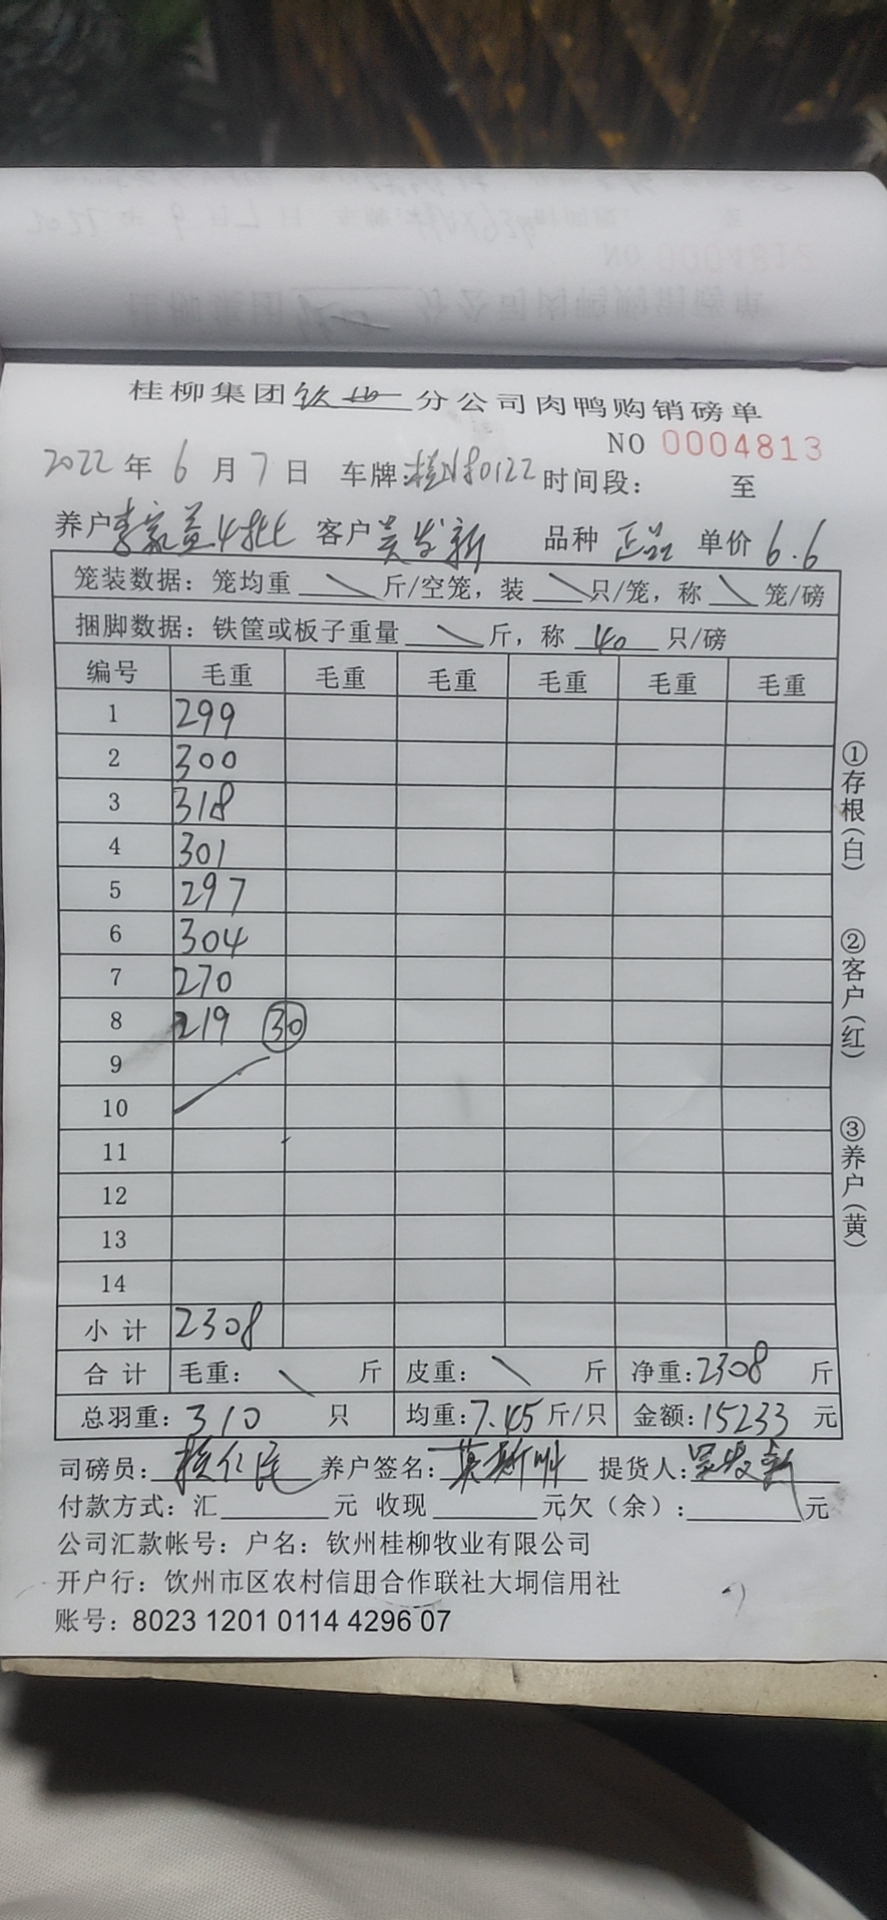 桂柳集团钦州分公司肉鸭购销磅单
NO 0004813
2022年6月7日 车牌:桂N80122 时间段: 至
养户李家益4批 客户吴发新 品种 正品 单价 6.6
笼装数据:笼均重 \ 斤/空笼,装 \ 只/笼,称 \ 笼/磅
捆脚数据:铁筐或板子重量 \ 斤,称 40 只/磅
编号 毛重 毛重 毛重 毛重 毛重 毛重
1 299
2 300
3 318
4 301
5 297
6 304
7 270
8 219 ㉚
9
10
11
12
13
14
小计 2308
合计 毛重: \ 斤 皮重: \ 斤 净重:2308 斤
总羽重:310 只 均重:7.45斤/只 金额:15233 元
司磅员: 养户签名: 提货人:吴发新
付款方式:汇______元 收现______元欠(余):______元
公司汇款帐号:户名:钦州桂柳牧业有限公司
开户行:钦州市区农村信用合作联社大垌信用社
账号:8023 1201 0114 4296 07
①存根(白)
②客户(红)
③养户(黄)